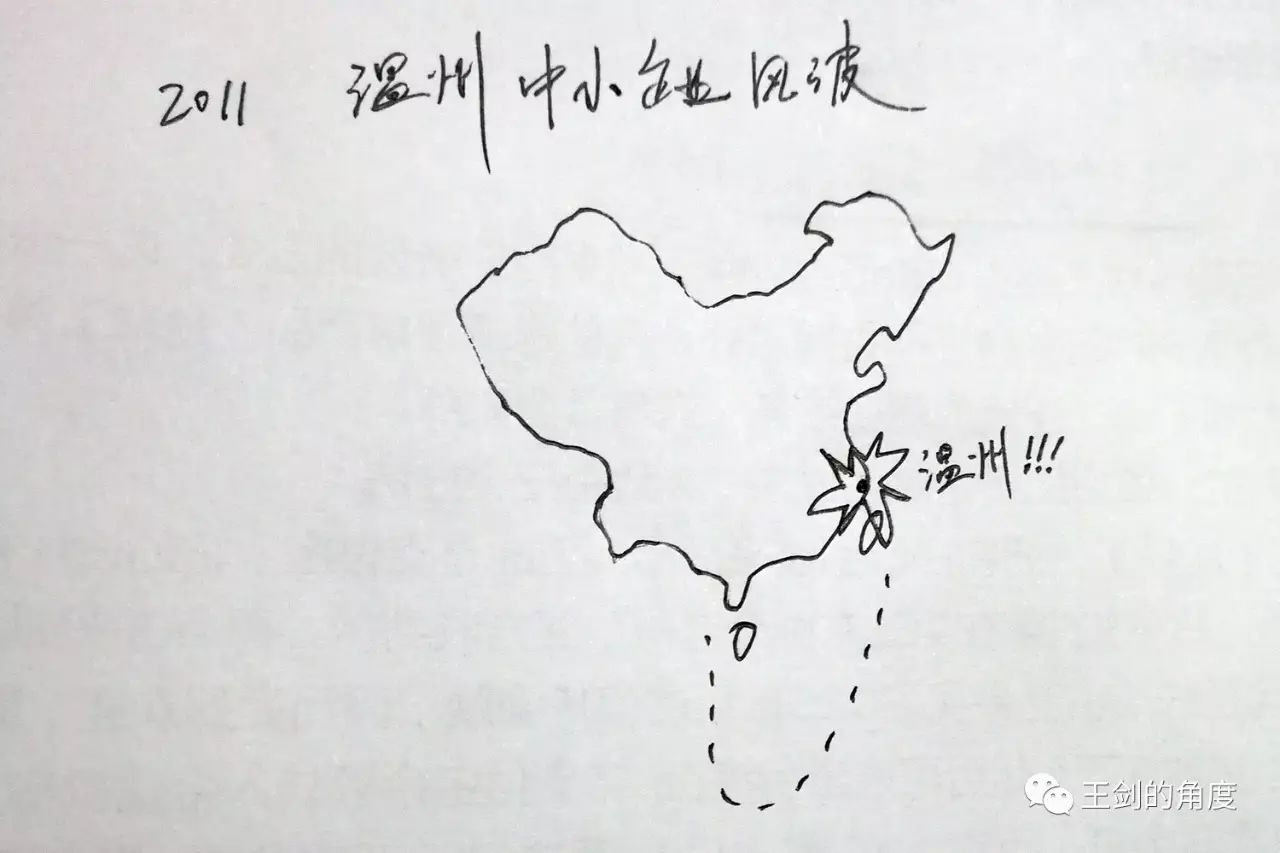 2011 温州中小企业风波
温州!!!
王剑的角度